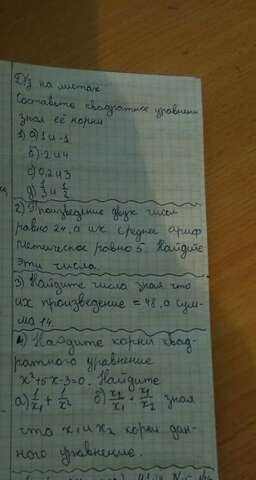 Д/з на листах
Составьте квадратное уравнение
зная её корни
1) а) 1 и -1
б) -2 и 4
с) 0,2 и 3
д) 1/3 и 1/2
2) Произведение двух чисел
равно 24, а их среднее ариф
метическое равно 5. Найдите
эти числа.
3) Найдите числа зная что
их произведение = 48, а сум-
ма 14
4) Найдите корни квад-
ратного уравнение
x²+5x-3=0. Найдите
а) 1/x₁ + 1/x² б) x₂/x₁ + x₁/x₂ зная
что x₁ и x₂ корни дан-
ного уравнение.